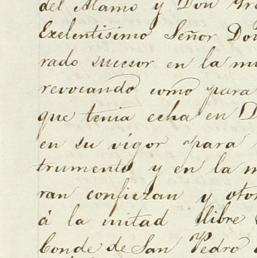 del Alamo y Don Gre
Exelentisimo Señor Don
rado sucesor en la mi
revocando como para
que tenia echa en D
en su vigor para
trumento, y en la m
ran confiezan y otor
á la mitad llibre
Conde de San Pedro d